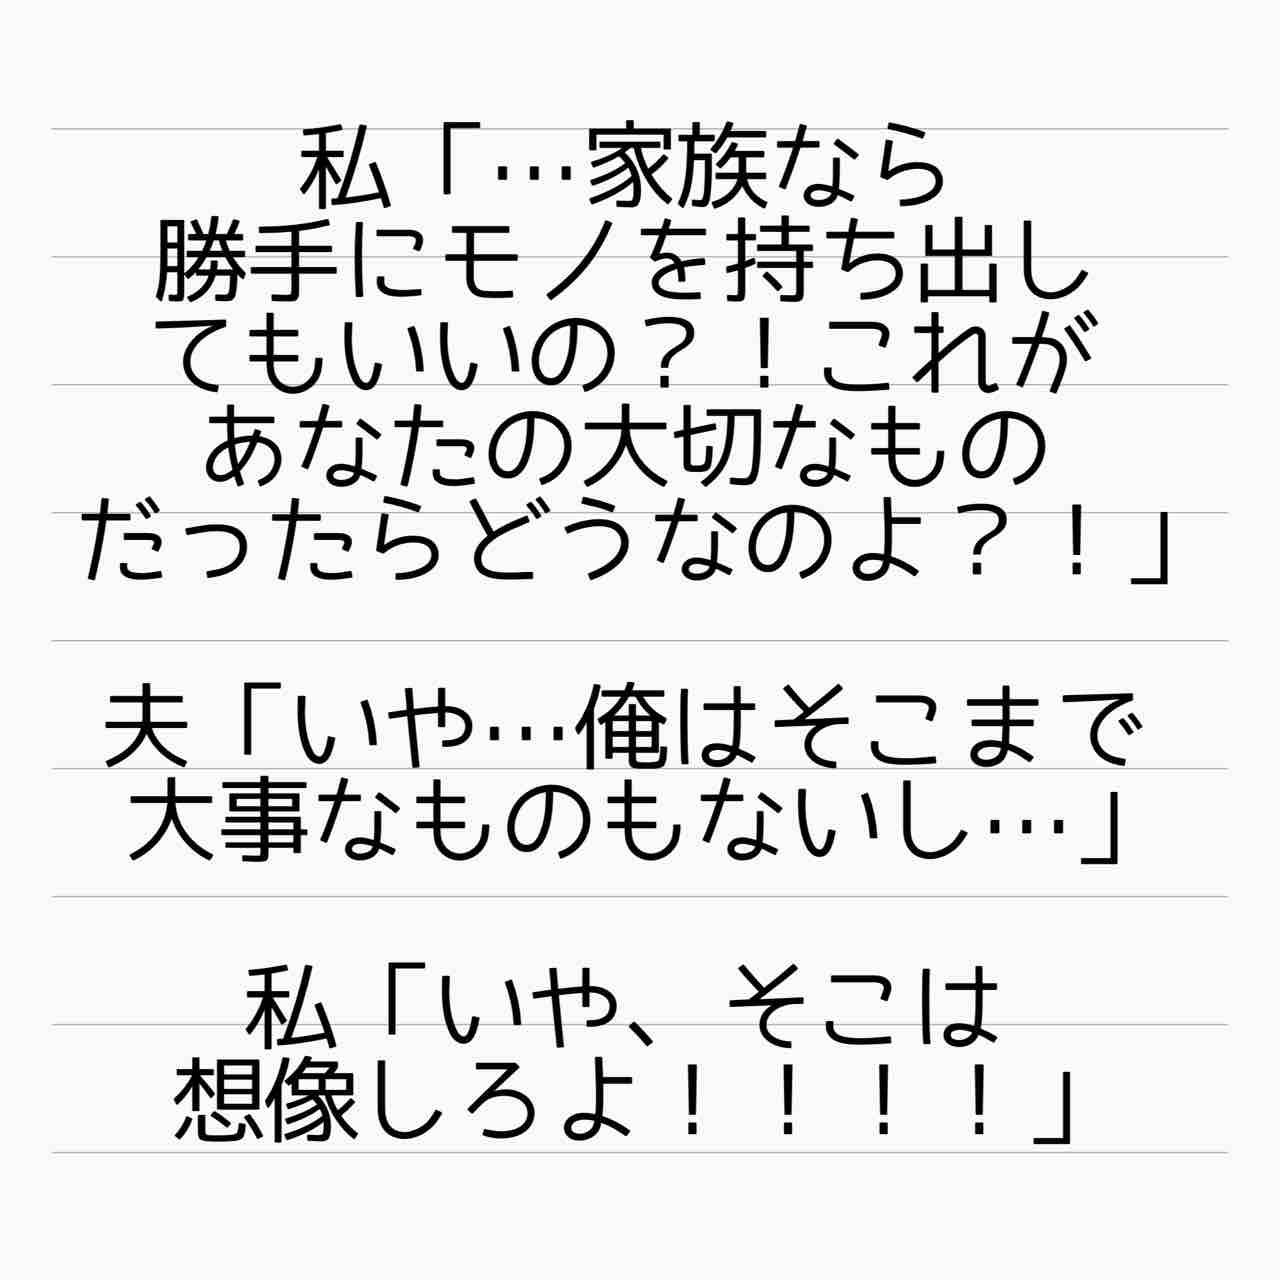 私「…家族なら
勝手にモノを持ち出し
てもいいの？！これが
あなたの大切なもの
だったらどうなのよ？！」
夫「いや…俺はそこまで
大事なものもないし…」
私「いや、そこは
想像しろよ！！！！」